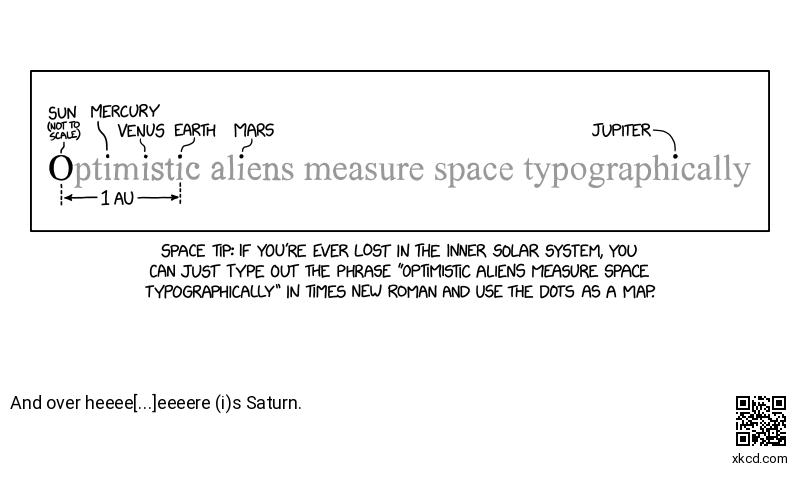 SUN MERCURY
(NOT TO SCALE) VENUS EARTH MARS JUPITER
Optimistic aliens measure space typographically
1 AU
SPACE TIP: IF YOU'RE EVER LOST IN THE INNER SOLAR SYSTEM, YOU
CAN JUST TYPE OUT THE PHRASE "OPTIMISTIC ALIENS MEASURE SPACE
TYPOGRAPHICALLY" IN TIMES NEW ROMAN AND USE THE DOTS AS A MAP.
And over heeee[...]eeeere (i)s Saturn.
xkcd.com